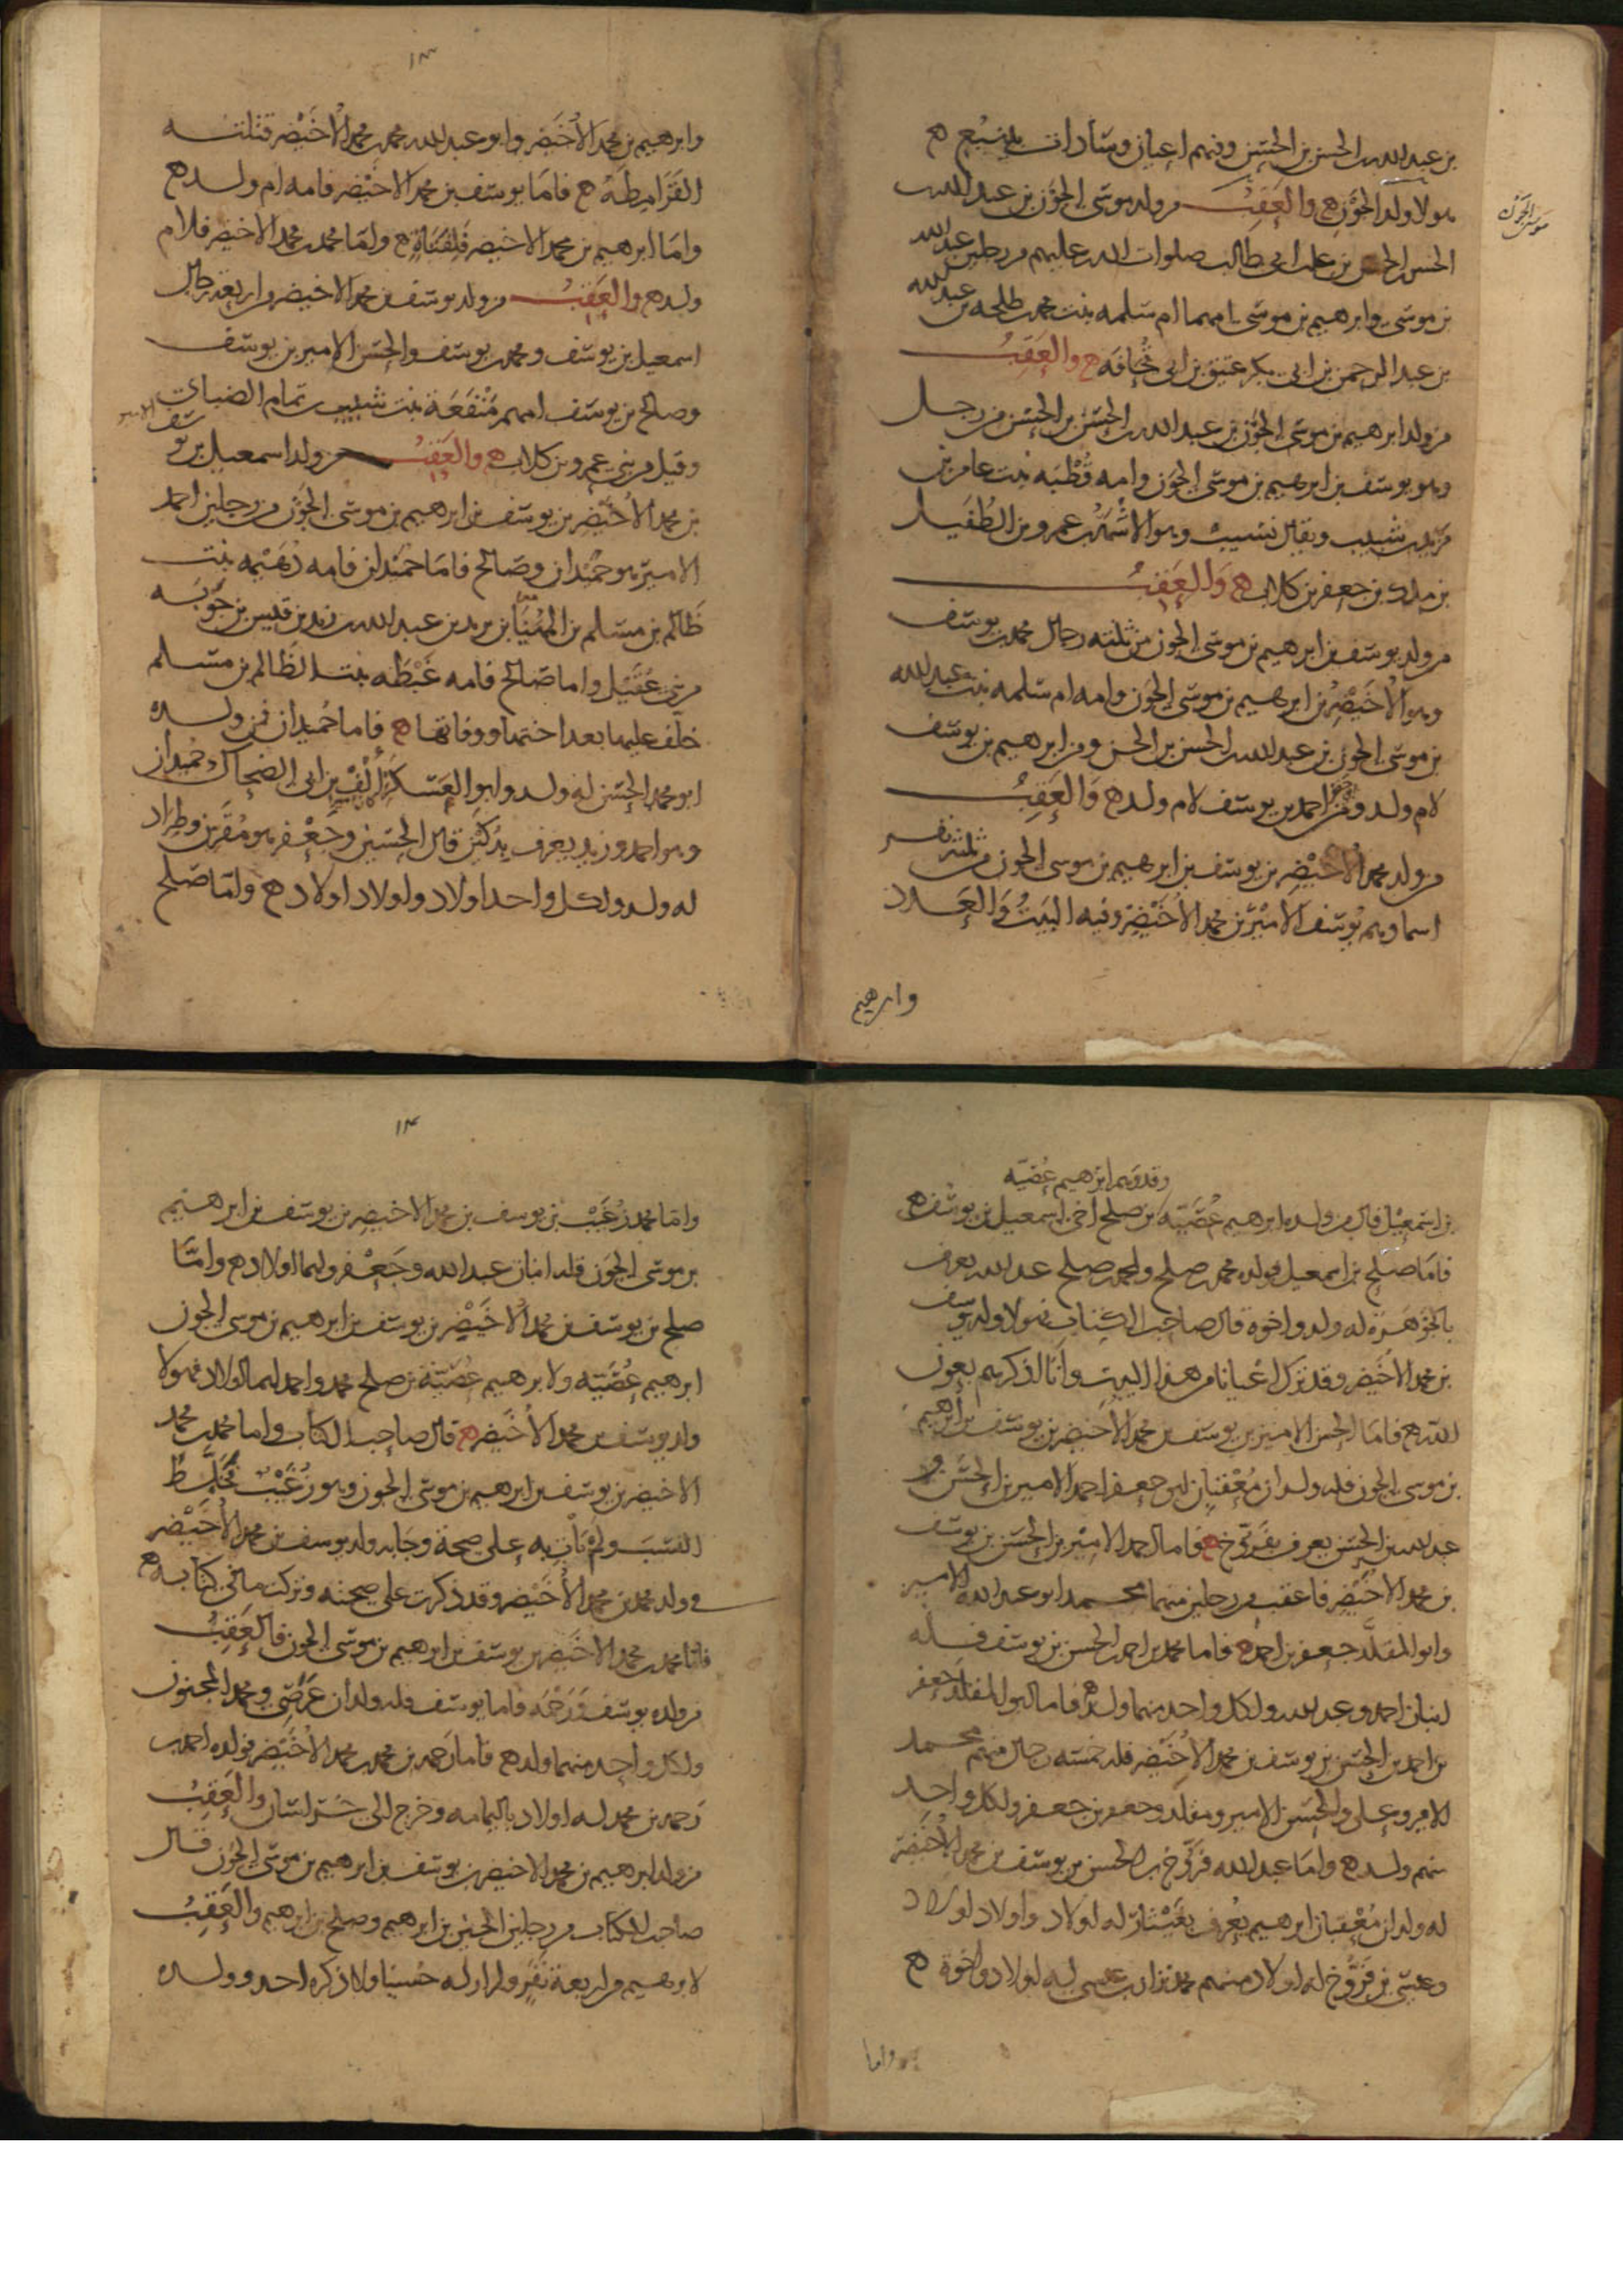 بن عبد الله بن الحسن بن الحسن وفيهم اعيان وسادات بينبع ه
موسى الجون
هولا ولد الجون ه والعقب من ولد موسى الجون بن عبد الله بن
الحسن بن الحسن بن علي بن ابي طالب صلوات الله عليهم من رجلين عبد الله
بن موسى وابرهيم بن موسى امهما ام سلمه بنت محمد بن طلحه بن عبد الله
بن عبد الرحمن بن ابي بكر عتيق بن ابي قحافه ه والعقب
من ولد ابرهيم بن موسى الجون بن عبد الله بن الحسن بن الحسن من رجل
وهو يوسف بن ابرهيم بن موسى الجون وامه قطبه بنت عامر بن
شبيب ويقال نسيب وهو الاشهب بن عمرو بن الطفيل
بن مالك بن جعفر بن كلاب ه والعقب
من ولد يوسف بن ابرهيم بن موسى الجون من ثلثه رجال محمد بن يوسف
وهو الاخيضر بن ابرهيم بن موسى الجون وامه ام سلمه بنت عبد الله
بن موسى الجون بن عبد الله بن الحسن بن الحسن ومن ابرهيم بن يوسف
لام ولد ومن احمد بن يوسف لام ولد ه والعقب
من ولد محمد الاخيضر بن يوسف بن ابرهيم بن موسى الجون من
اسماوهم يوسف الامير بن محمد الاخيضر وفيه البيت والعدد
وابرهيم
١٣
وابرهيم بن محمد الاخيضر وابو عبد الله محمد بن محمد الاخيضر قتلته
القرامطه ه فاما يوسف بن محمد الاخيضر فامه ام ولد ه
واما ابرهيم بن محمد الاخيضر فلفتاة ه واما محمد بن محمد الاخيضر فلام
ولد ه والعقب من ولد يوسف بن محمد الاخيضر من اربعة رجال
اسمعيل بن يوسف ومحمد بن يوسف والحسن الامير بن يوسف
وصالح بن يوسف امهم منفعة بنت شبيب بن تمام الضبابي
وقيل من بني عمرو بن كلاب ه والعقب من ولد اسمعيل بن يوسف الامير
بن محمد الاخيضر بن يوسف بن ابرهيم بن موسى الجون من رجلين احمد
الامير هو حميدان وصالح فاما حميدان فامه دهيمه بنت
ظالم بن مسلم بن المهيا بن يزيد بن عبد الله بن زيد بن قيس بن جوثه
من بني عقيل واما صالح فامه غبطه بنت الظالم بن مسلم
خلف عليها بعد اختها ووفاتها ه فاما حميدان فمن ولده
ابو محمد الحسن له ولد وابو العسكر بن ابي الضحاك بن حميدان
وهو احمد وزيد يعرف بذكين قال الحسين وجعفر هو مقرن وطراد
له ولد ولكل واحد اولاد ولاولاد اولاد ه واما صلح
وقد وهم ابرهيم عضيه
بن اسمعيل قال من ولده ابرهيم عضيه بن صلح اخي اسمعيل بن يوسف ه
فاما صلح بن اسمعيل فولده محمد بن صلح ولمحمد بن صلح عبد الله يعرف
بالجوهرة له ولد واخوة قال صاحب الكتاب فهولا ولد يوسف
بن محمد الاخيضر وقد ترك اعيانا من هذا البيت وانا اذكرهم بعون
الله ه فاما الحسن الامير بن يوسف بن محمد الاخيضر بن يوسف بن ابرهيم
بن موسى الجون فله ولدان معقبان ابو جعفر احمد الامير بن الحسن و
عبد الله بن الحسن يعرف بفروخ ه فاما احمد الامير بن الحسن بن يوسف
بن محمد الاخيضر فاعقب من رجلين منهما محمد ابو عبد الله الامير
وابو المقلد جعفر بن احمد ه فاما محمد بن احمد بن الحسن بن يوسف فله
ابنان احمد وعبد الله ولكل واحد منهما ولد ه فاما ابو المقلد جعفر
بن احمد بن الحسن بن يوسف بن محمد الاخيضر فله خمسه رجال منهم محمد
الامير وعلي والحسن الامير ومقلد وجعفر بن جعفر ولكل واحد
منهم ولد ه واما عبد الله فروخ بن الحسن بن يوسف بن محمد الاخيضر
له ولدان معقبان ابرهيم يعرف بغيثار له اولاد واولاد اولاد
وعيسى بن فروخ له اولاد منهم محمد بن عيسى له اولاد واخوة ه
واما
١٤
واما محمد زغيب بن يوسف بن محمد الاخيضر بن يوسف بن ابرهيم
بن موسى الجون فله ابنان عبد الله وجعفر ولهما اولاد ه واما
صلح بن يوسف بن محمد الاخيضر بن يوسف بن ابرهيم بن موسى الجون
ابرهيم عضيه ولابرهيم عضية بن صلح محمد واحمد لهما اولاد فهولا
ولد يوسف بن محمد الاخيضر ه قال صاحب الكتاب واما محمد بن محمد
الاخيضر بن يوسف بن ابرهيم بن موسى الجون وهو زغيب فخلط
النسب ولم يات به على صحة وجا به ولد يوسف بن محمد الاخيضر
في ولد محمد بن محمد الاخيضر وقد ذكرت على صحته وتركت ما في كتابه ه
فاما محمد بن محمد الاخيضر بن يوسف بن ابرهيم بن موسى الجون فالعقب
من ولده يوسف ورحمه فاما يوسف فله ولدان عرضي ومحمد المجنون
ولكل واحد منهما ولد ه فاما رحمه بن محمد بن محمد الاخيضر فولده احمد بن
رحمه بن محمد له اولاد باليمامه وخرج الى خراسان والعقب
من ولد ابرهيم بن محمد الاخيضر بن يوسف بن ابرهيم بن موسى الجون قال
صاحب الكتاب من رجلين الحسين بن ابرهيم وصلح بن ابرهيم والعقب
لابرهيم من اربعة نفر ولم ار له حسينا ولا ذكره احد وولده